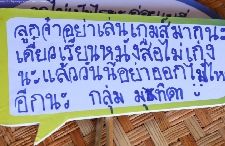 ลูกจ๋าอย่าเล่นเกมส์มากนะ
เดี๋ยวเรียนหนังสือไม่เก่ง
นะแล้ววันนี้อย่าออกไปไห
อีกนะ กลุ่ม มุทิตา